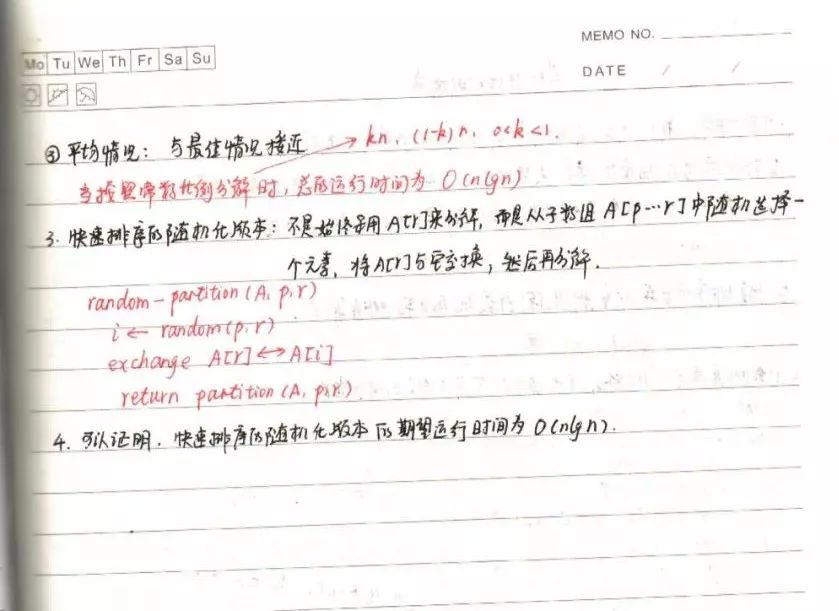 MEMO NO.
Mo Tu We Th Fr Sa Su
DATE / /
③ 平均情况: 与最佳情况接近 → kn, (1-k)n, 0<k<1.
当按照常数比例分解时, 总的运行时间为 O(nlgn)
3. 快速排序的随机化版本: 不是始终采用A[r]来分解, 而是从子数组 A[p…r]中随机选择一
个元素, 将A[r]与它交换, 然后再分解.
random-partition(A, p, r)
i ← random(p, r)
exchange A[r] ↔ A[i]
return partition(A, p, r)
4. 可以证明, 快速排序的随机化版本的期望运行时间为 O(nlgn).